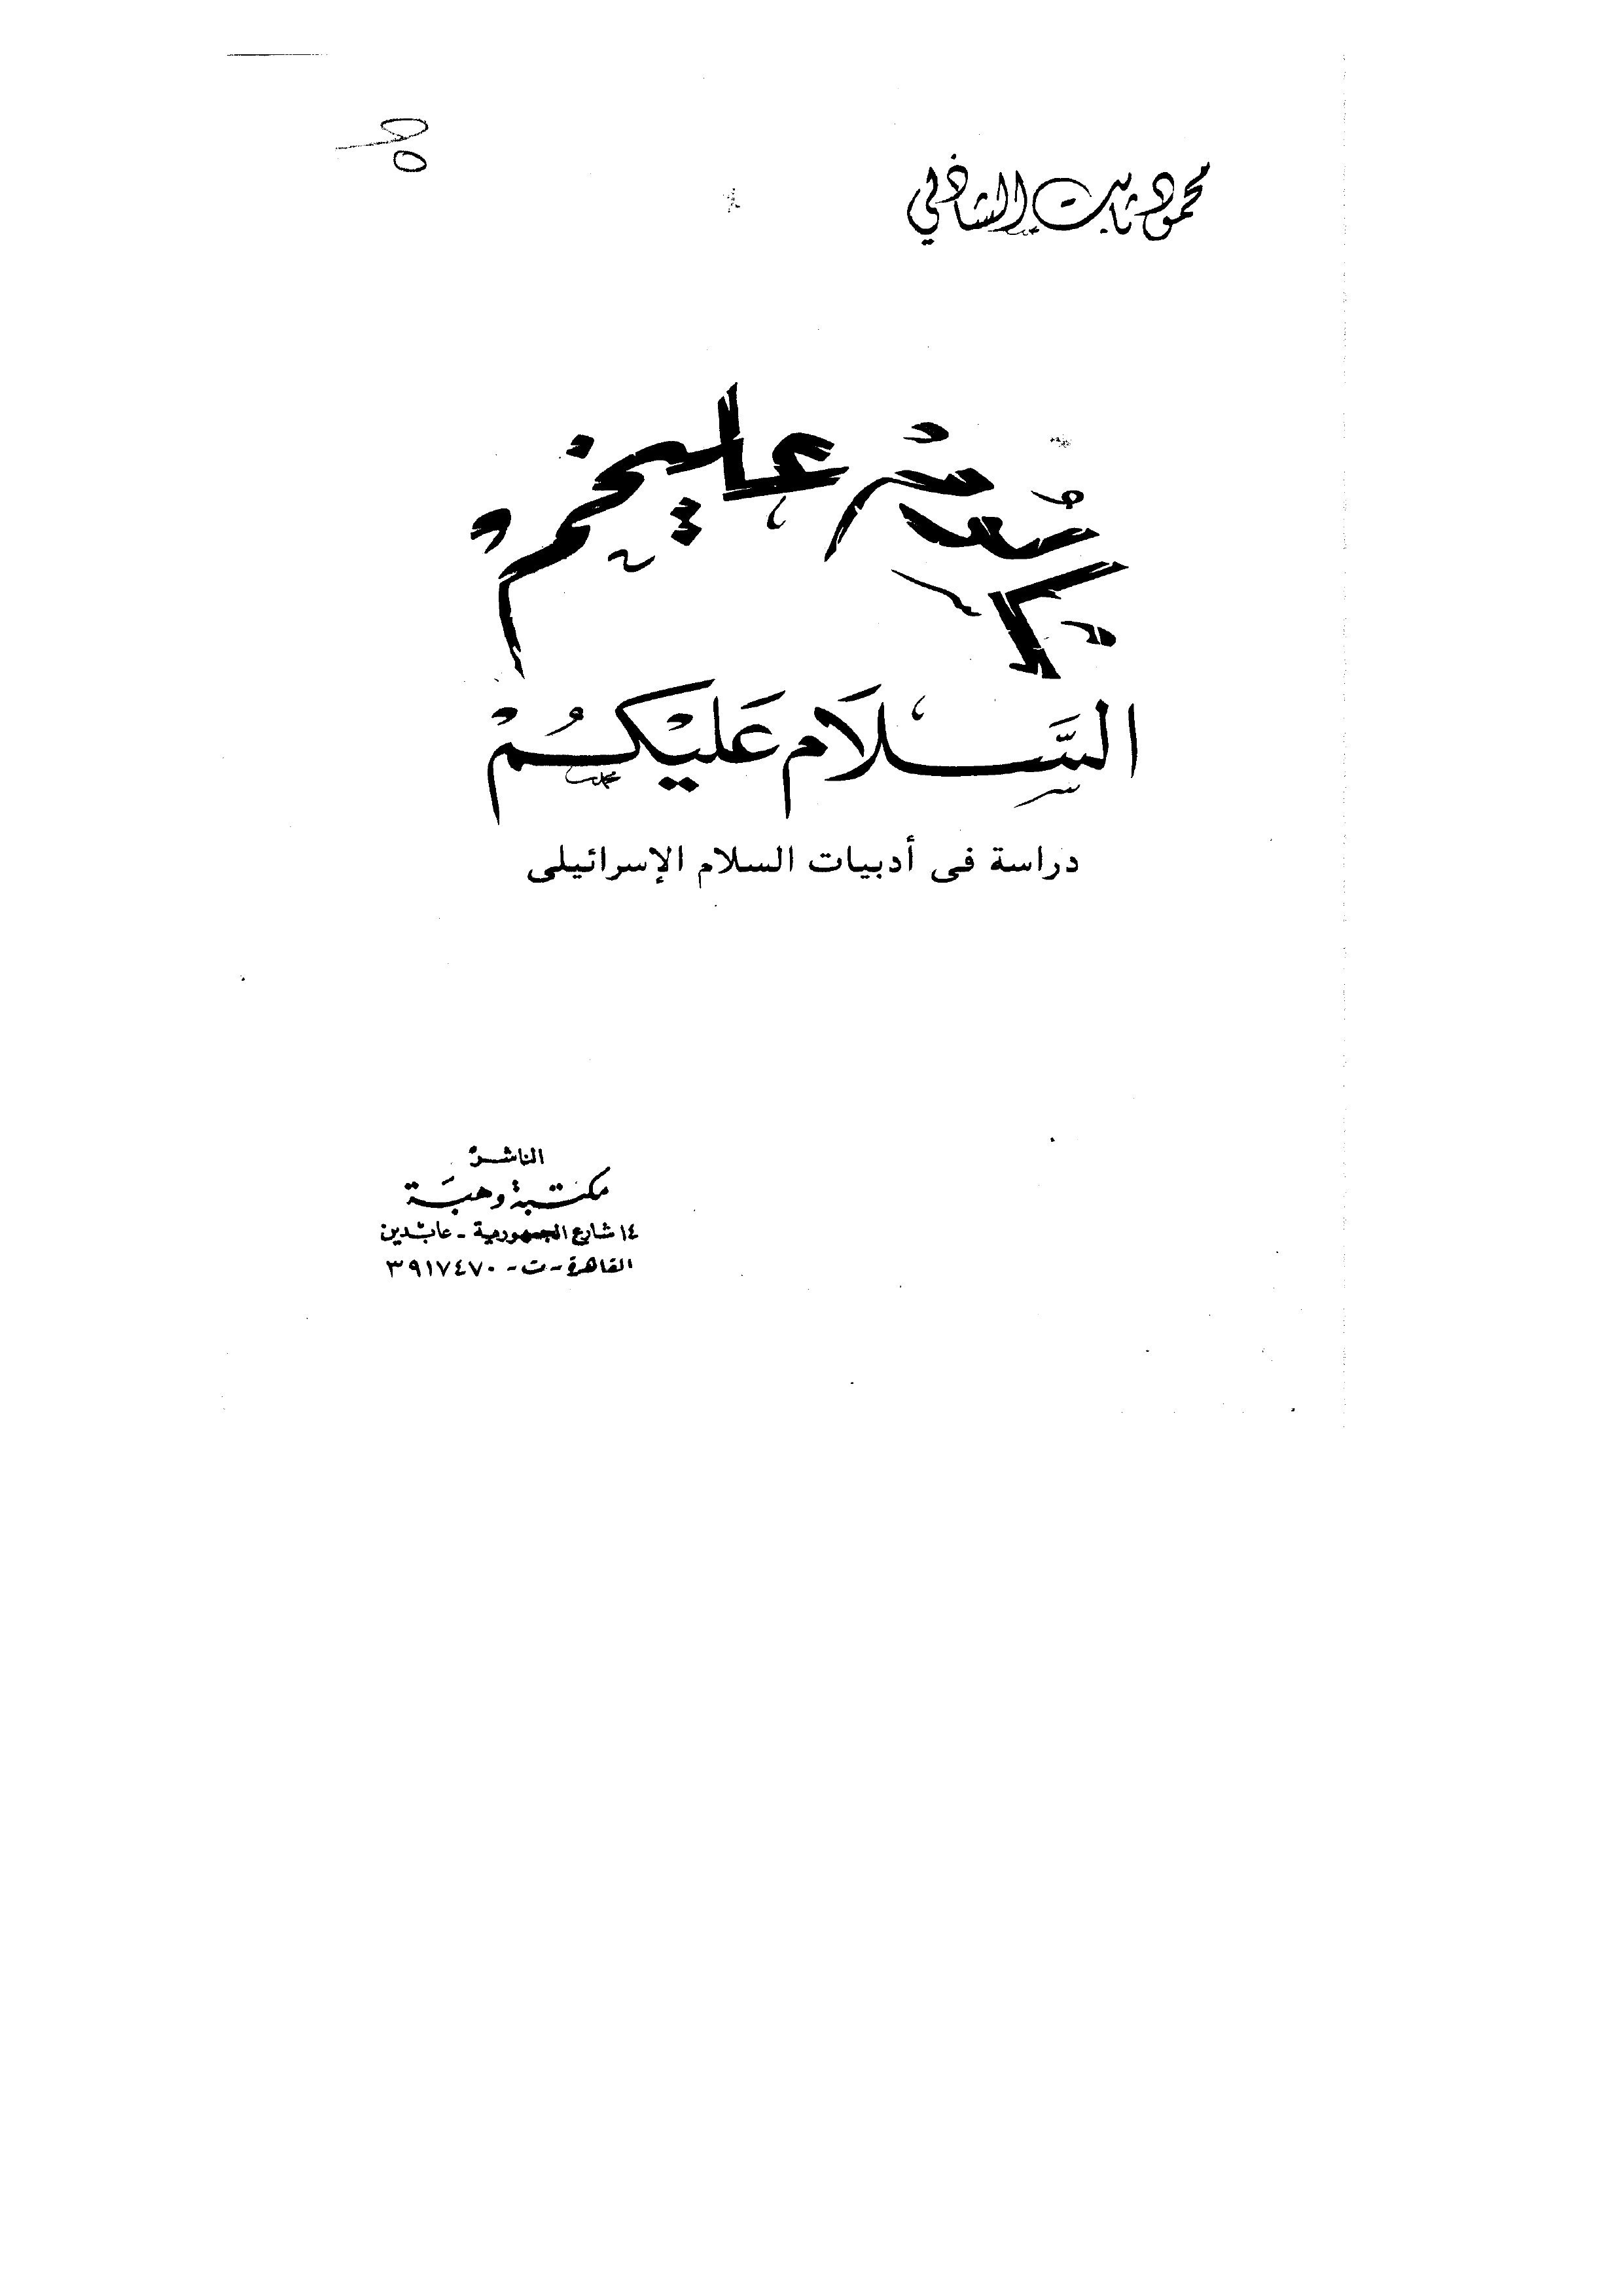 محمود ثابت الشاذلي
عليخم
السَّلَام عَلَيْكُمْ
دراسة فى أدبيات السلام الإسرائيلى
الناشر
مكتبة وهبة
١٤ شارع الجمهورية - عابدين
القاهرة - ت - ٣٩١٧٤٧٠